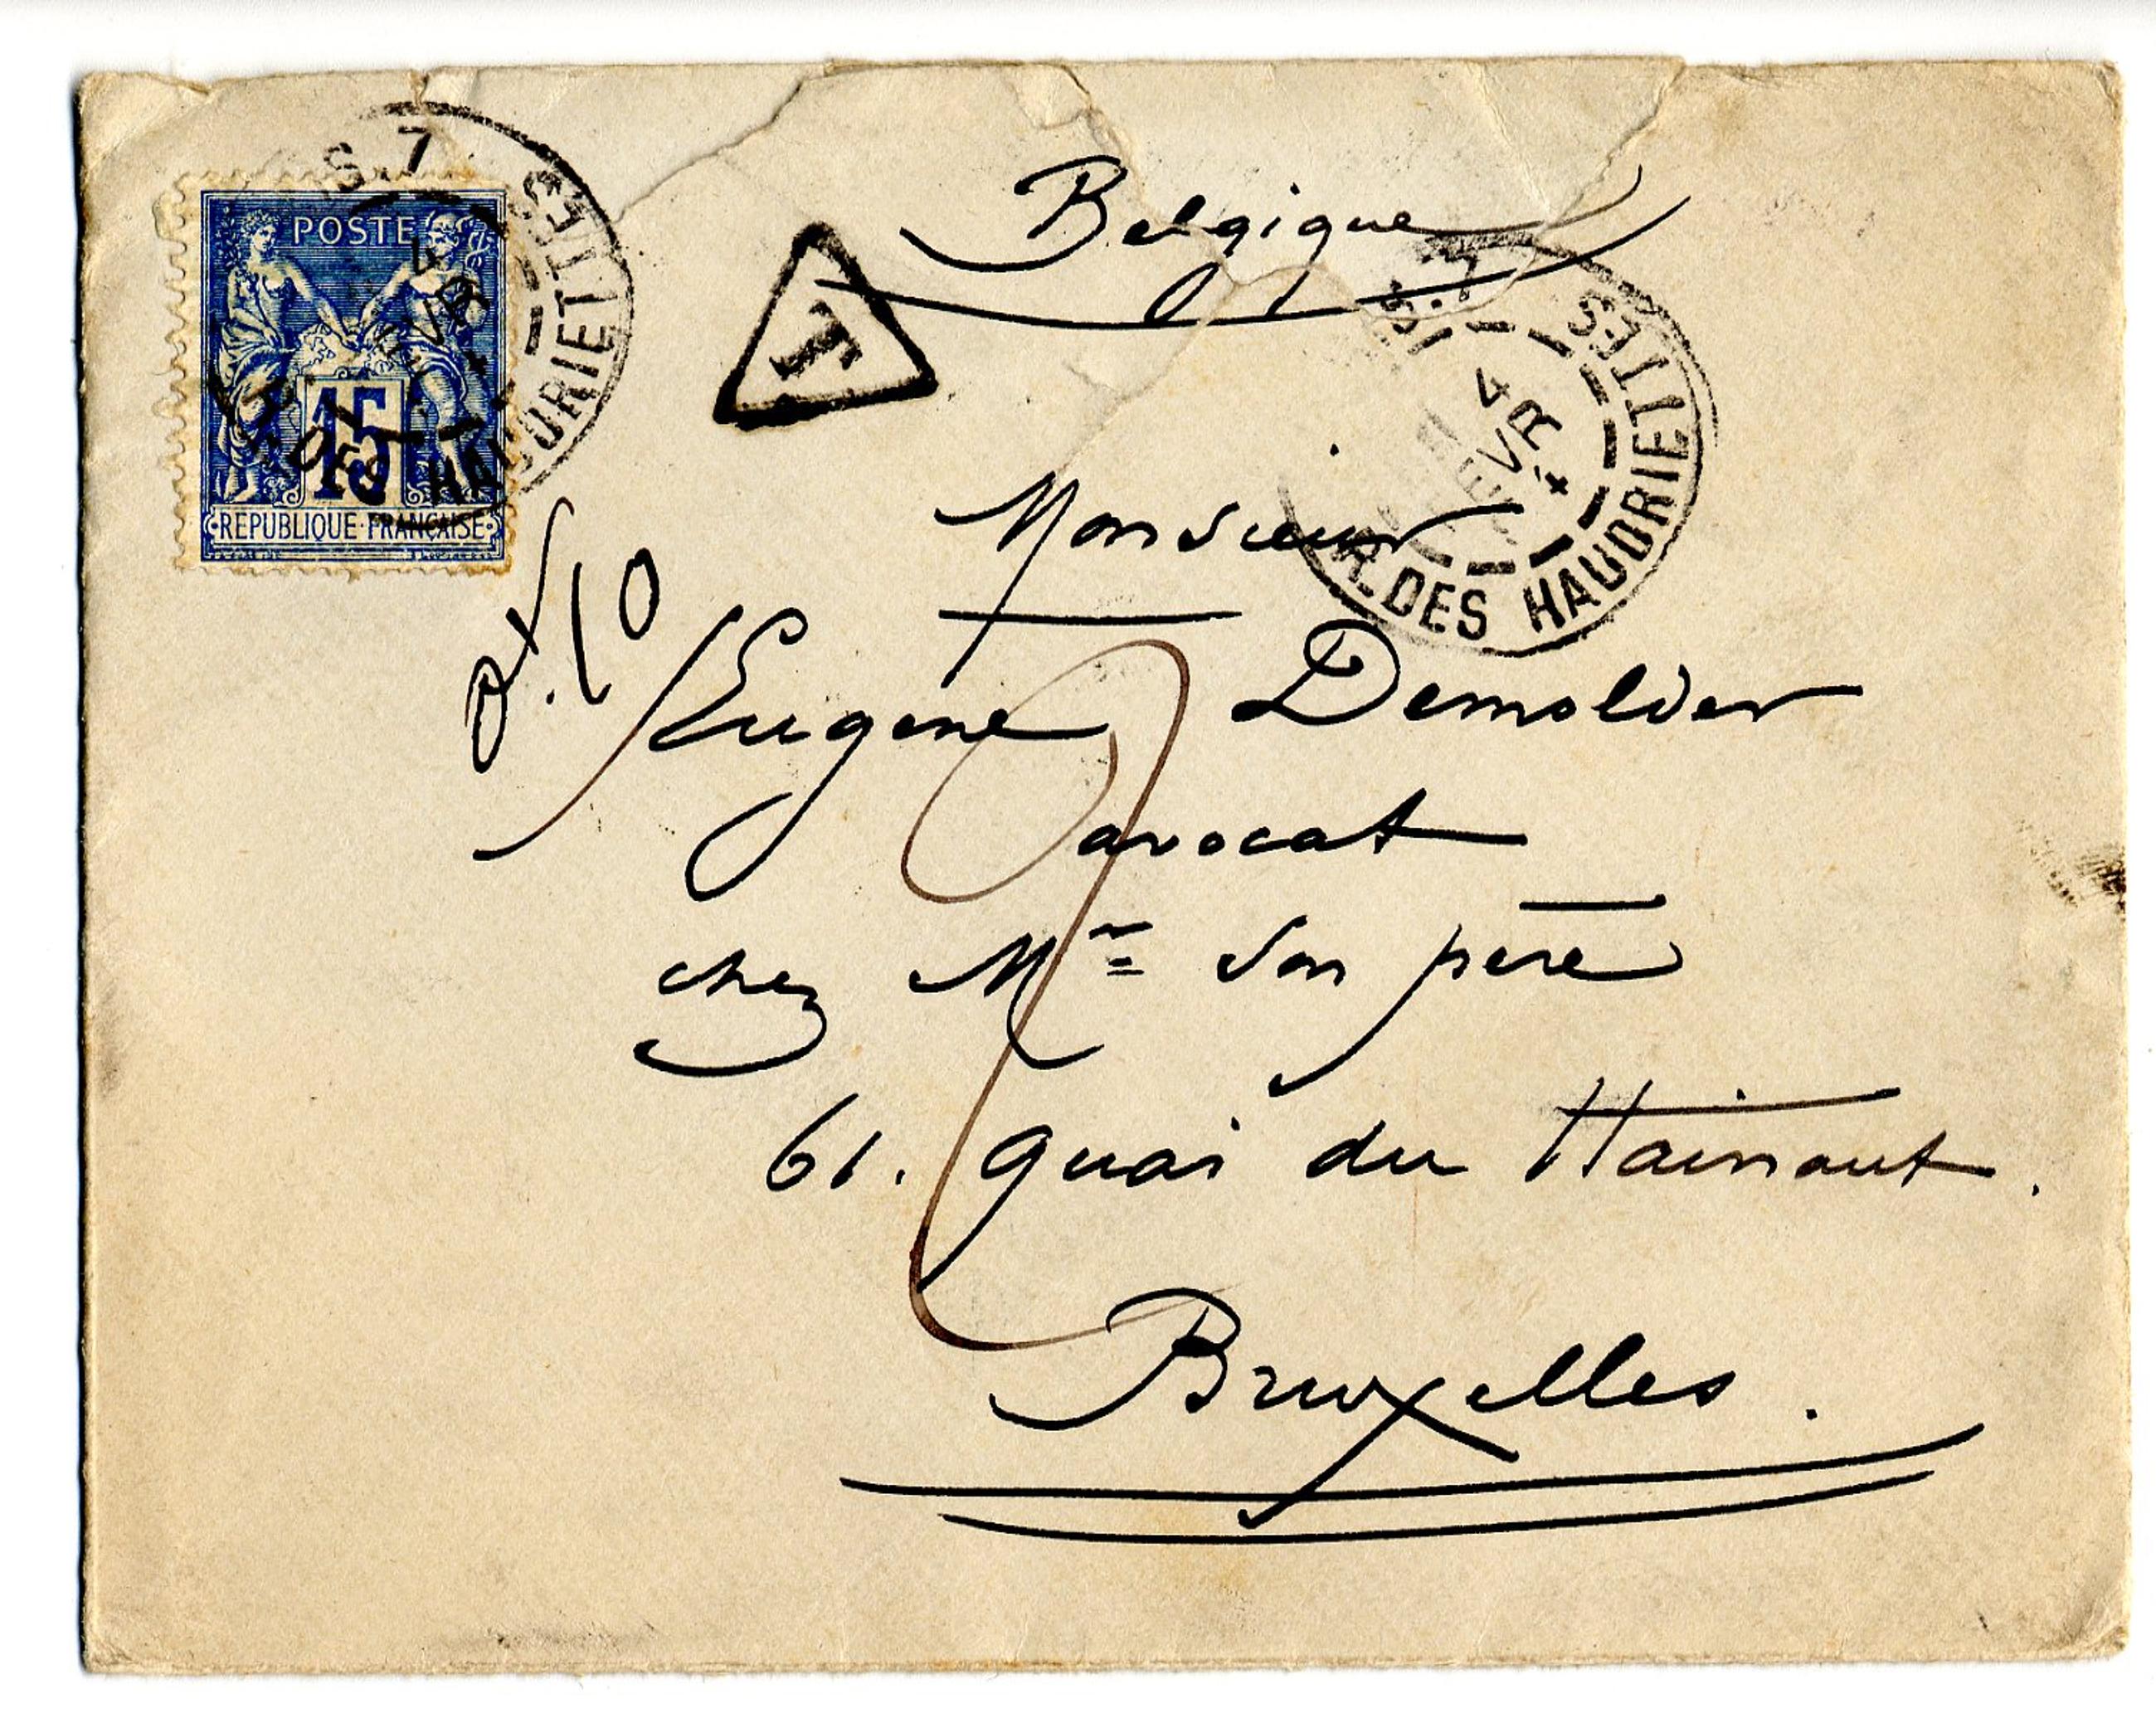 POSTE
15
REPUBLIQUE FRANÇAISE
S. 7
4
EVR
R. DES HAUDRIETTES
Belgique
T
S. 7
4
EVR
4
R. DES HAUDRIETTES
10
Monsieur
Eugene Demolder
avocat
chez Mr son père
61. quai du Hainaut.
Bruxelles.